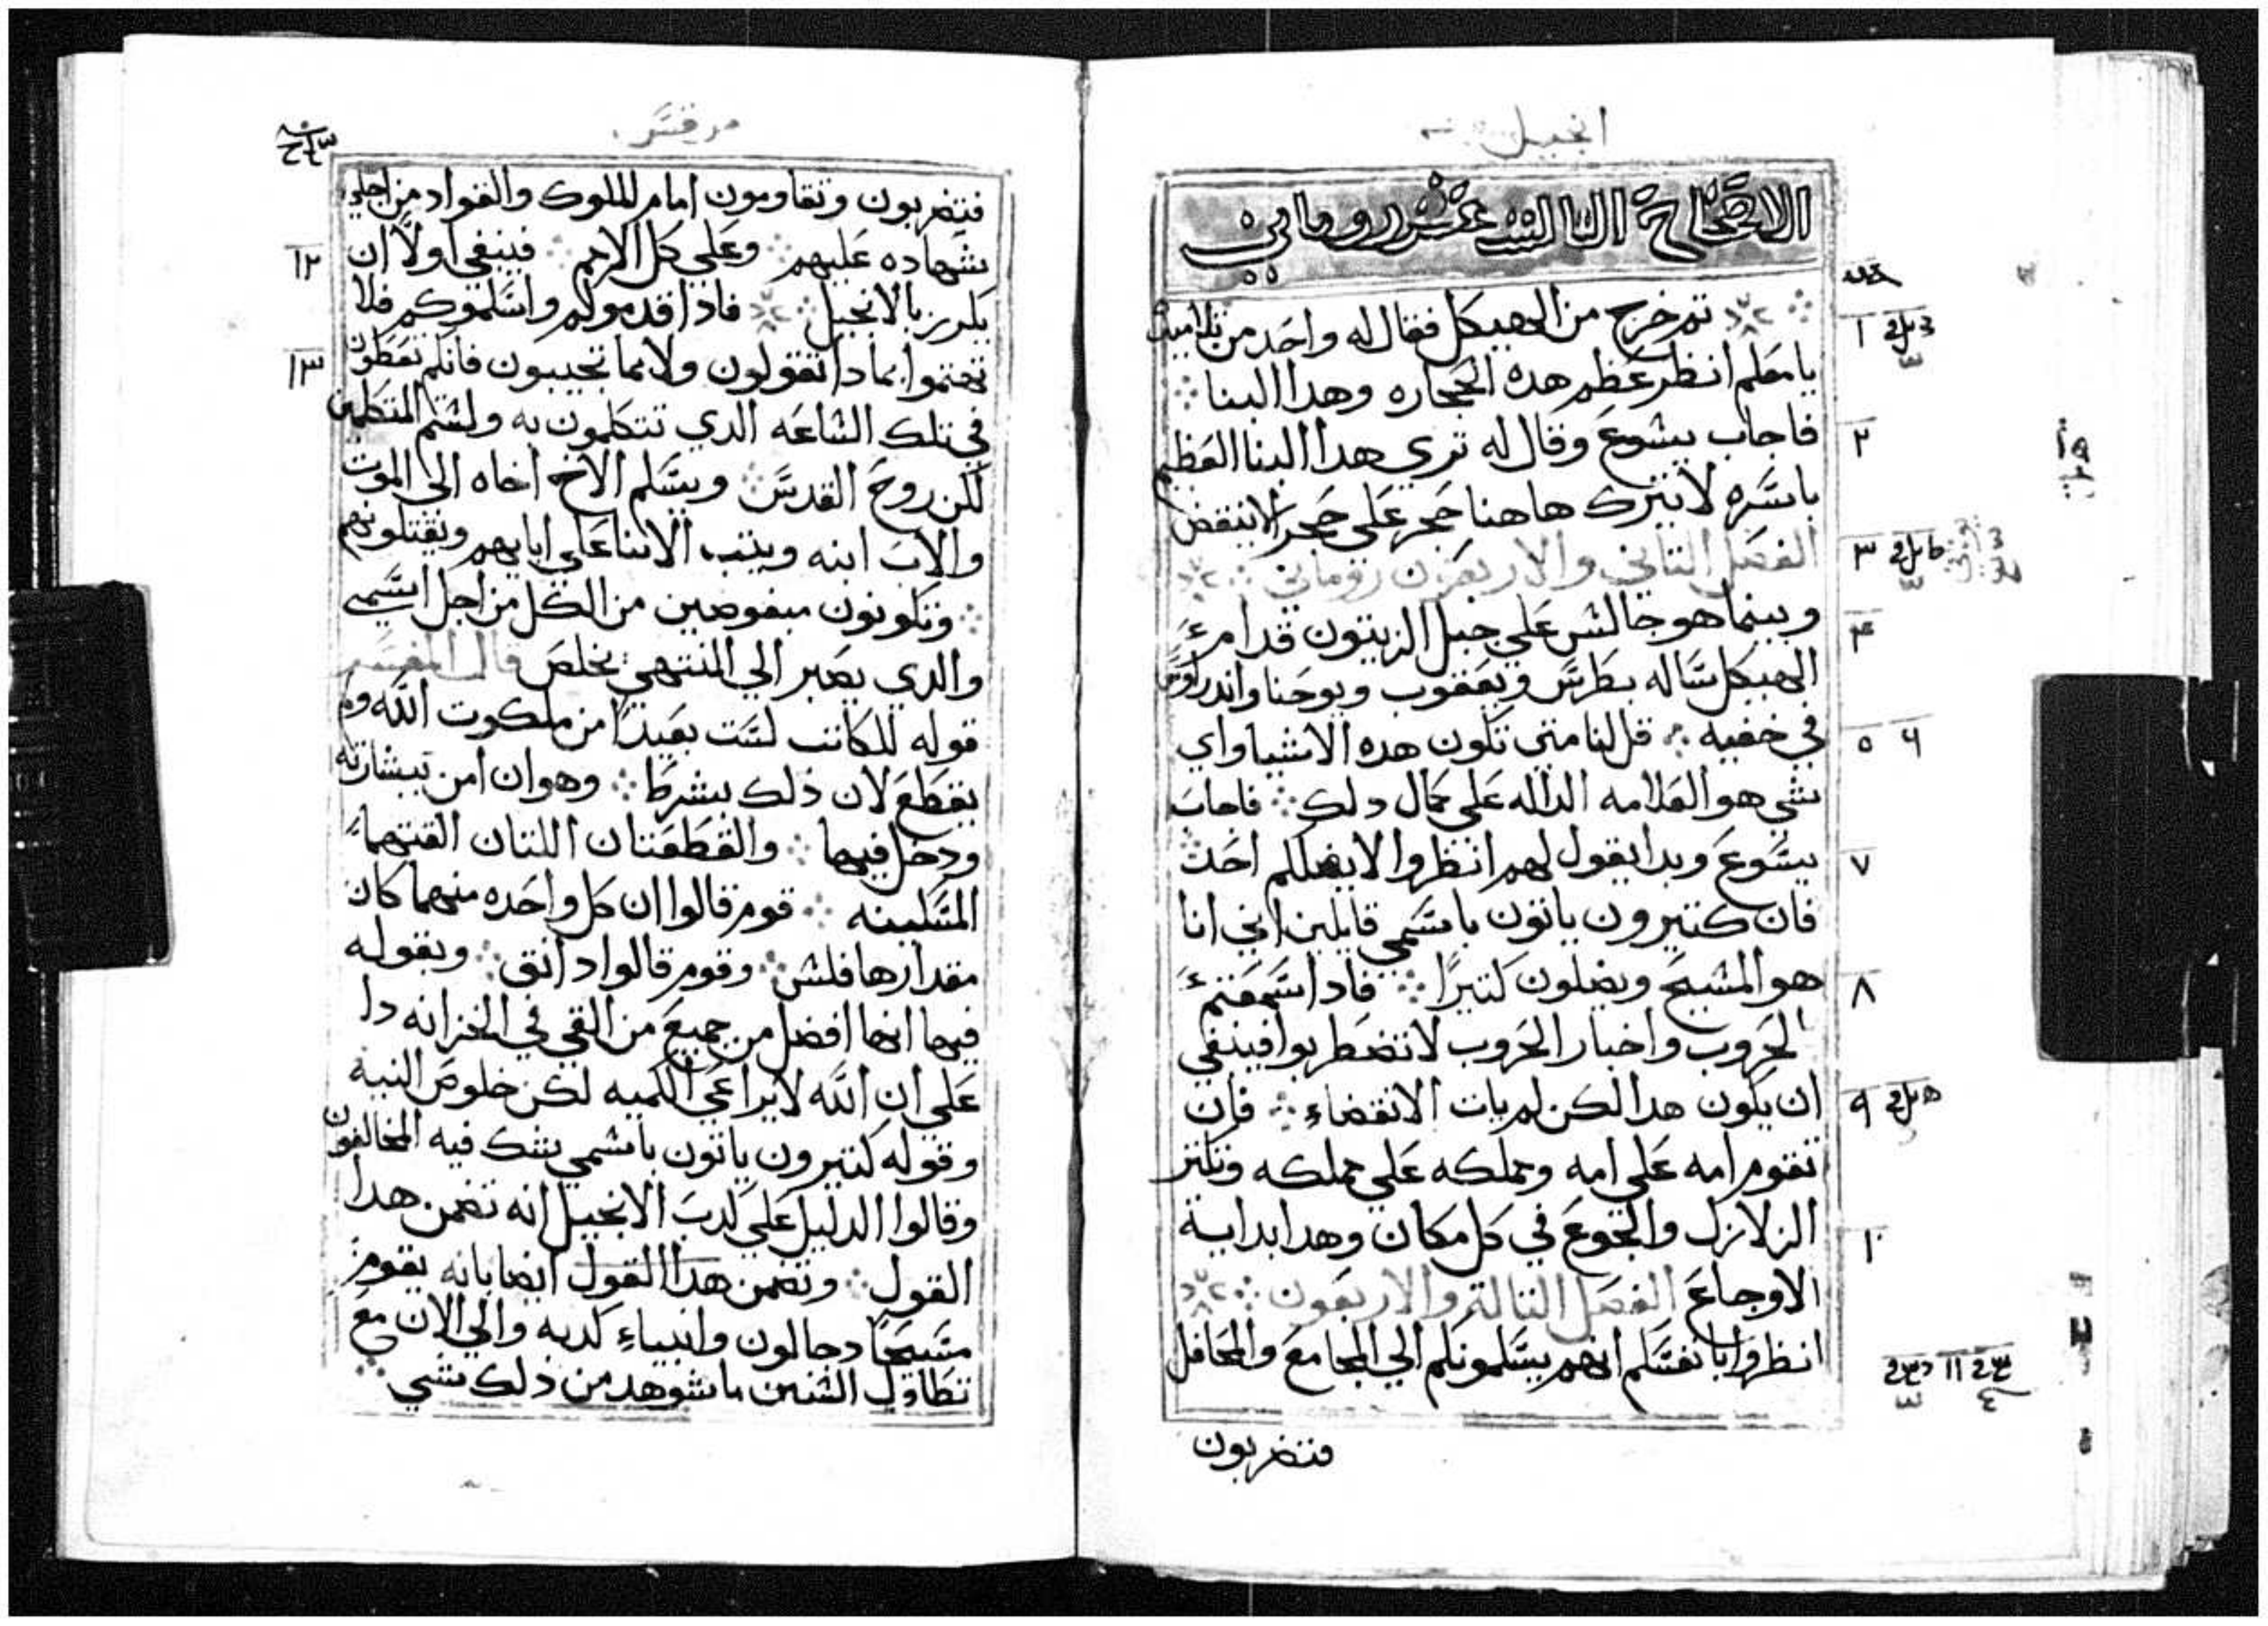 انجيل
الاصحاح التالت عشر روماني
تم خرج من الهيكل فقال له واحد من تلاميده
يا معلم انظر عظم هده الحجاره وهدا البنا
فاجاب يسوع وقال له تري هدا البنا العظيم
باسره لا يترك هاهنا حجر علي حجر الا ينقض
الفصل التاني والاربعون روماني
وبينما هو جالس علي جبل الزيتون قدام
الهيكل ساله بطرس ويعقوب ويوحنا واندراوس
في خفيه قل لنا متي تكون هده الاشيا واي
شي هو العلامه الداله علي كمال دلك فاجاب
يسوع وبدا يقول لهم انظروا لا يضلكم احد
فان كتيرون ياتون باسمي قايلين اني انا
هو المسيح ويضلون كتيرا فادا سمعتم
الحروب واخبار الحروب لا تضطربوا فينبغي
ان يكون هدا لكن لم يات الانقضاء فان
تقوم امه علي امه ومملكه علي مملكه وتكتر
الزلازل والجوع في كل مكان وهدا بداية
الاوجاع الفصل التالت والاربعون
انظروا بانفسكم انهم يسلمونكم الي المجامع والمحافل
فتضربون
١
٢
٣
٤
٥ ٦
٧
٨
٩
١٠
١١
مرقس
فتضربون وتقاومون امام الملوك والقواد من اجلي
شهاده عليهم وعلي كل الامم فينبغي اولا ان
يكرز بالانجيل فادا قدموكم واسلموكم فلا
تهتموا بمادا تقولون ولا بما تجيبون فانكم تعطون
في تلك الساعه الدي تتكلمون به ولستم المتكلمين
لكن روح القدس ويسلم الاخ اخاه الي الموت
والاب ابنه ويتب الابنا علي ابايهم ويقتلونهم
وتكونون مبغوضين من الكل من اجل اسمي
والدي يصبر الي المنتهي يخلص قال المفسر
قوله للكاتب لست بعيدا من ملكوت الله ولم
يقطع لان ذلك بشرط وهو ان امن ببشارته
ودخل فيها والقطعتان اللتان القتهما
المسكينه قوم قالوا ان كل واحده منهما كان
مقدارها فلس وقوم قالوا دانق وبقوله
فيها انها افضل من جميع من القي في الخزانه دل
علي ان الله لا يراعي الكميه لكن خلوص النيه
وقوله كتيرون ياتون باسمي شك فيه المخالفون
وقالوا الدليل علي كدب الانجيل انه تضمن هدا
القول وتضمن هدا القول ايضا بانه يقوم
مسيحا دجالون وانبياء كدبه والي الان مع
تطاول السنين ما شوهد من ذلك شي
١٢
١٣